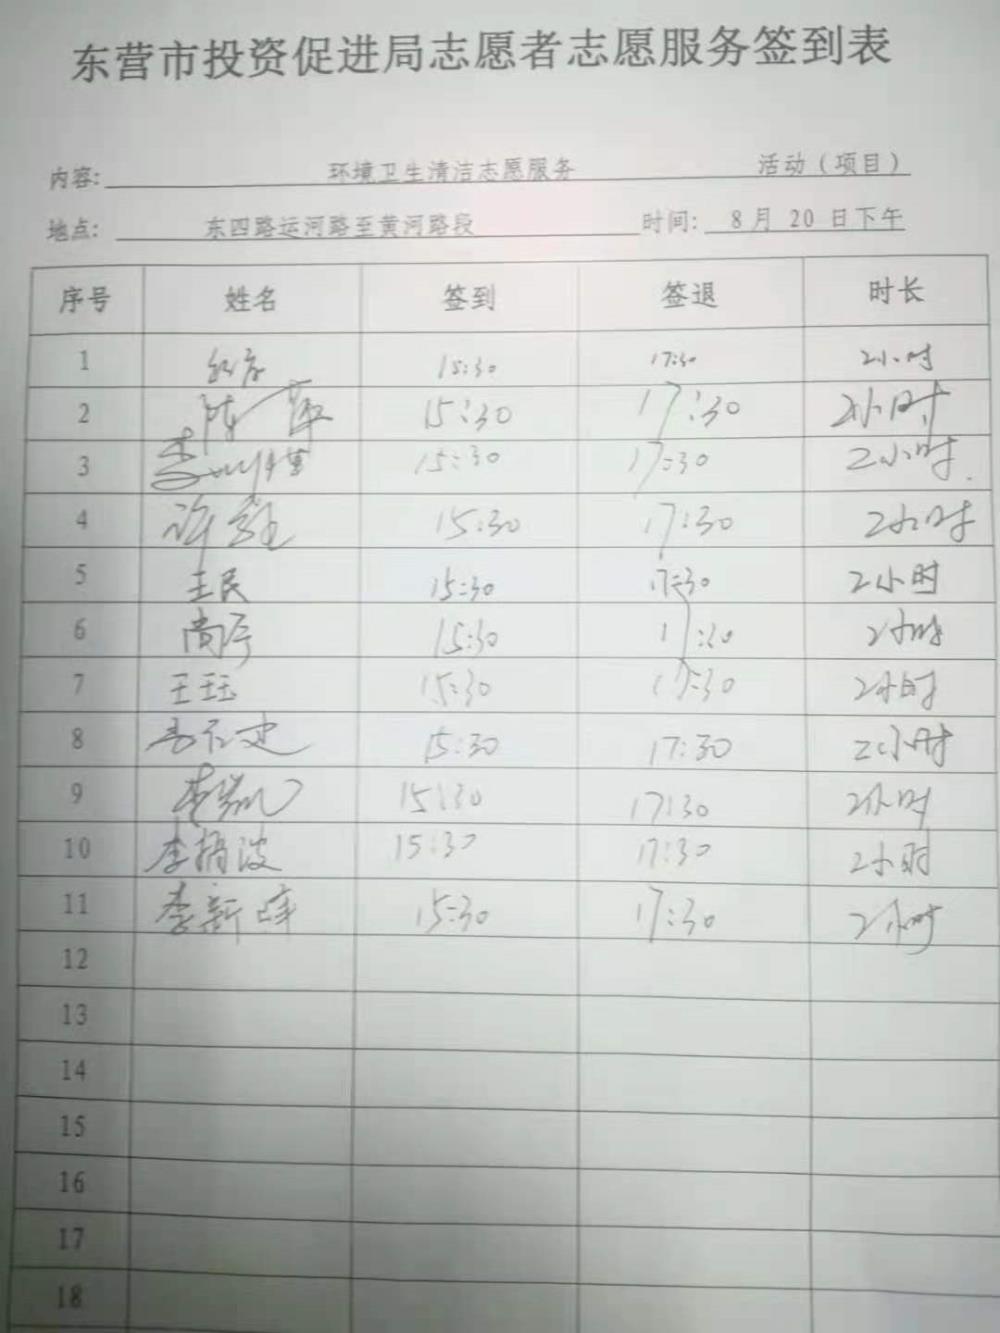 东营市投资促进局志愿者志愿服务签到表
内容: 环境卫生清洁志愿服务 活动（项目）
地点: 东四路运河路至黄河路段 时间: 8月 20 日下午
序号 姓名 签到 签退 时长
1 15:30 17:30 2小时
2 陈萍 15:30 17:30 2小时
3 李 15:30 17:30 2小时
4 许 15:30 17:30 2小时
5 王民 15:30 17:30 2小时
6 尚 15:30 17:30 2小时
7 王珏 15:30 17:30 2小时
8 15:30 17:30 2小时
9 李凯 15:30 17:30 2小时
10 李 波 15:30 17:30 2小时
11 李新峰 15:30 17:30 2小时
12
13
14
15
16
17
18